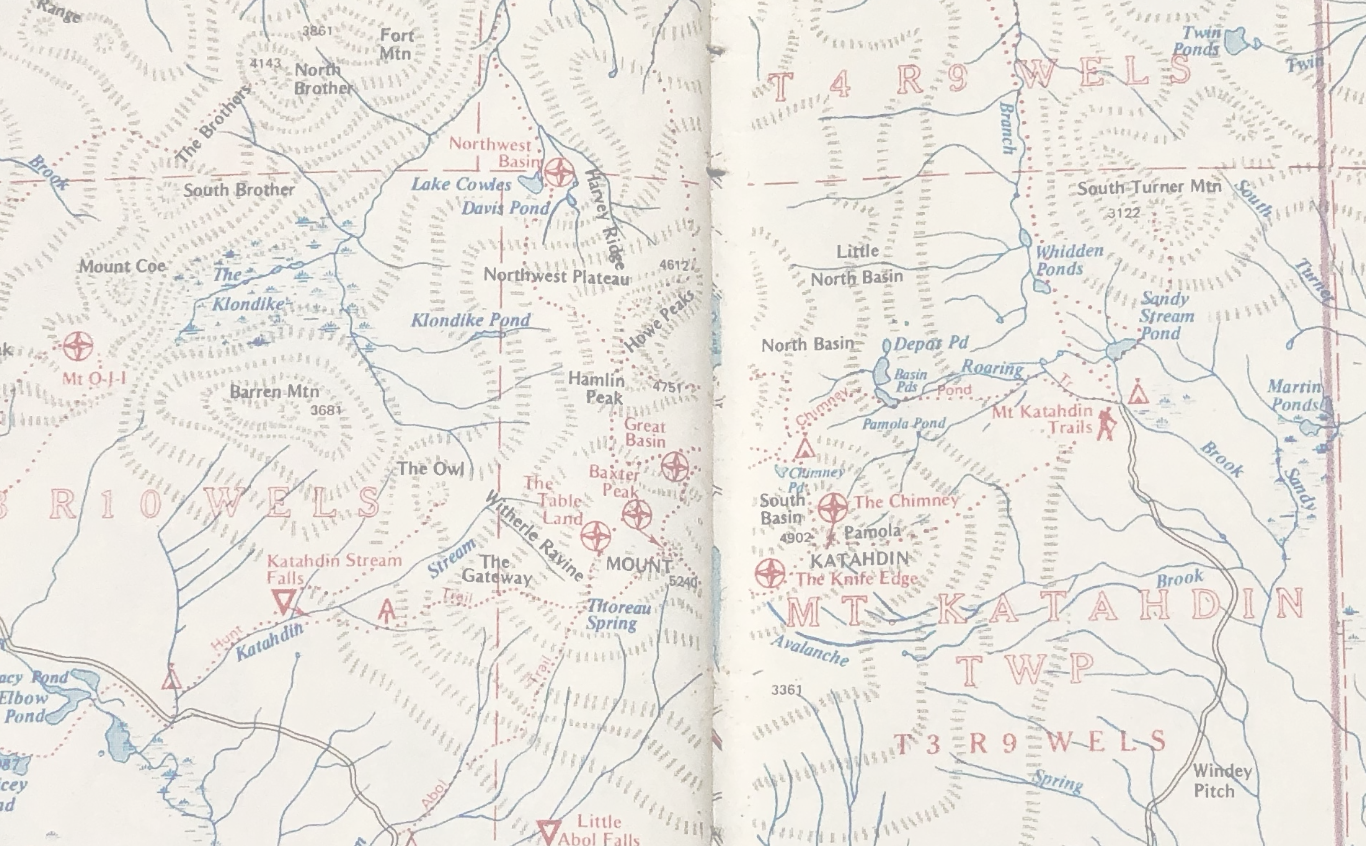 Range
3861
Fort
Mtn
4143
North
Brother
The Brothers
Brook
South Brother
Northwest
Basin
Lake Cowles
Davis Pond
Harvey Ridge
Mount Coe
The
Klondike
Northwest Plateau
4612
Klondike Pond
Howe Peaks
Mt O-J-I
Barren Mtn
3681
Hamlin
Peak
4751
Great
Basin
The Owl
Baxter
Peak
The
Table
Land
R10 WELS
Witherle Ravine
Katahdin Stream
Falls
Stream
The
Gateway
MOUNT
5240
Trail
Thoreau
Spring
Hunt
Katahdin
Trail
Elbow
Pond
Abol
Little
Abol Falls
Twin
Ponds
Twin
T 4 R 9 WELS
Branch
South Turner Mtn
3122
South
Turner
Little
North Basin
Whidden
Ponds
Sandy
Stream
Pond
North Basin
Depot Pd
Basin
Pds
Roaring
Pond
Tr
Martin
Ponds
Chimney
Pamola Pond
Mt Katahdin
Trails
Chimney
Pd
Brook
Sandy
South
Basin
The Chimney
4902
Pamola
KATAHDIN
The Knife Edge
Brook
MT. KATAHDIN
TWP
Avalanche
3361
T3 R9 WELS
Spring
Windey
Pitch